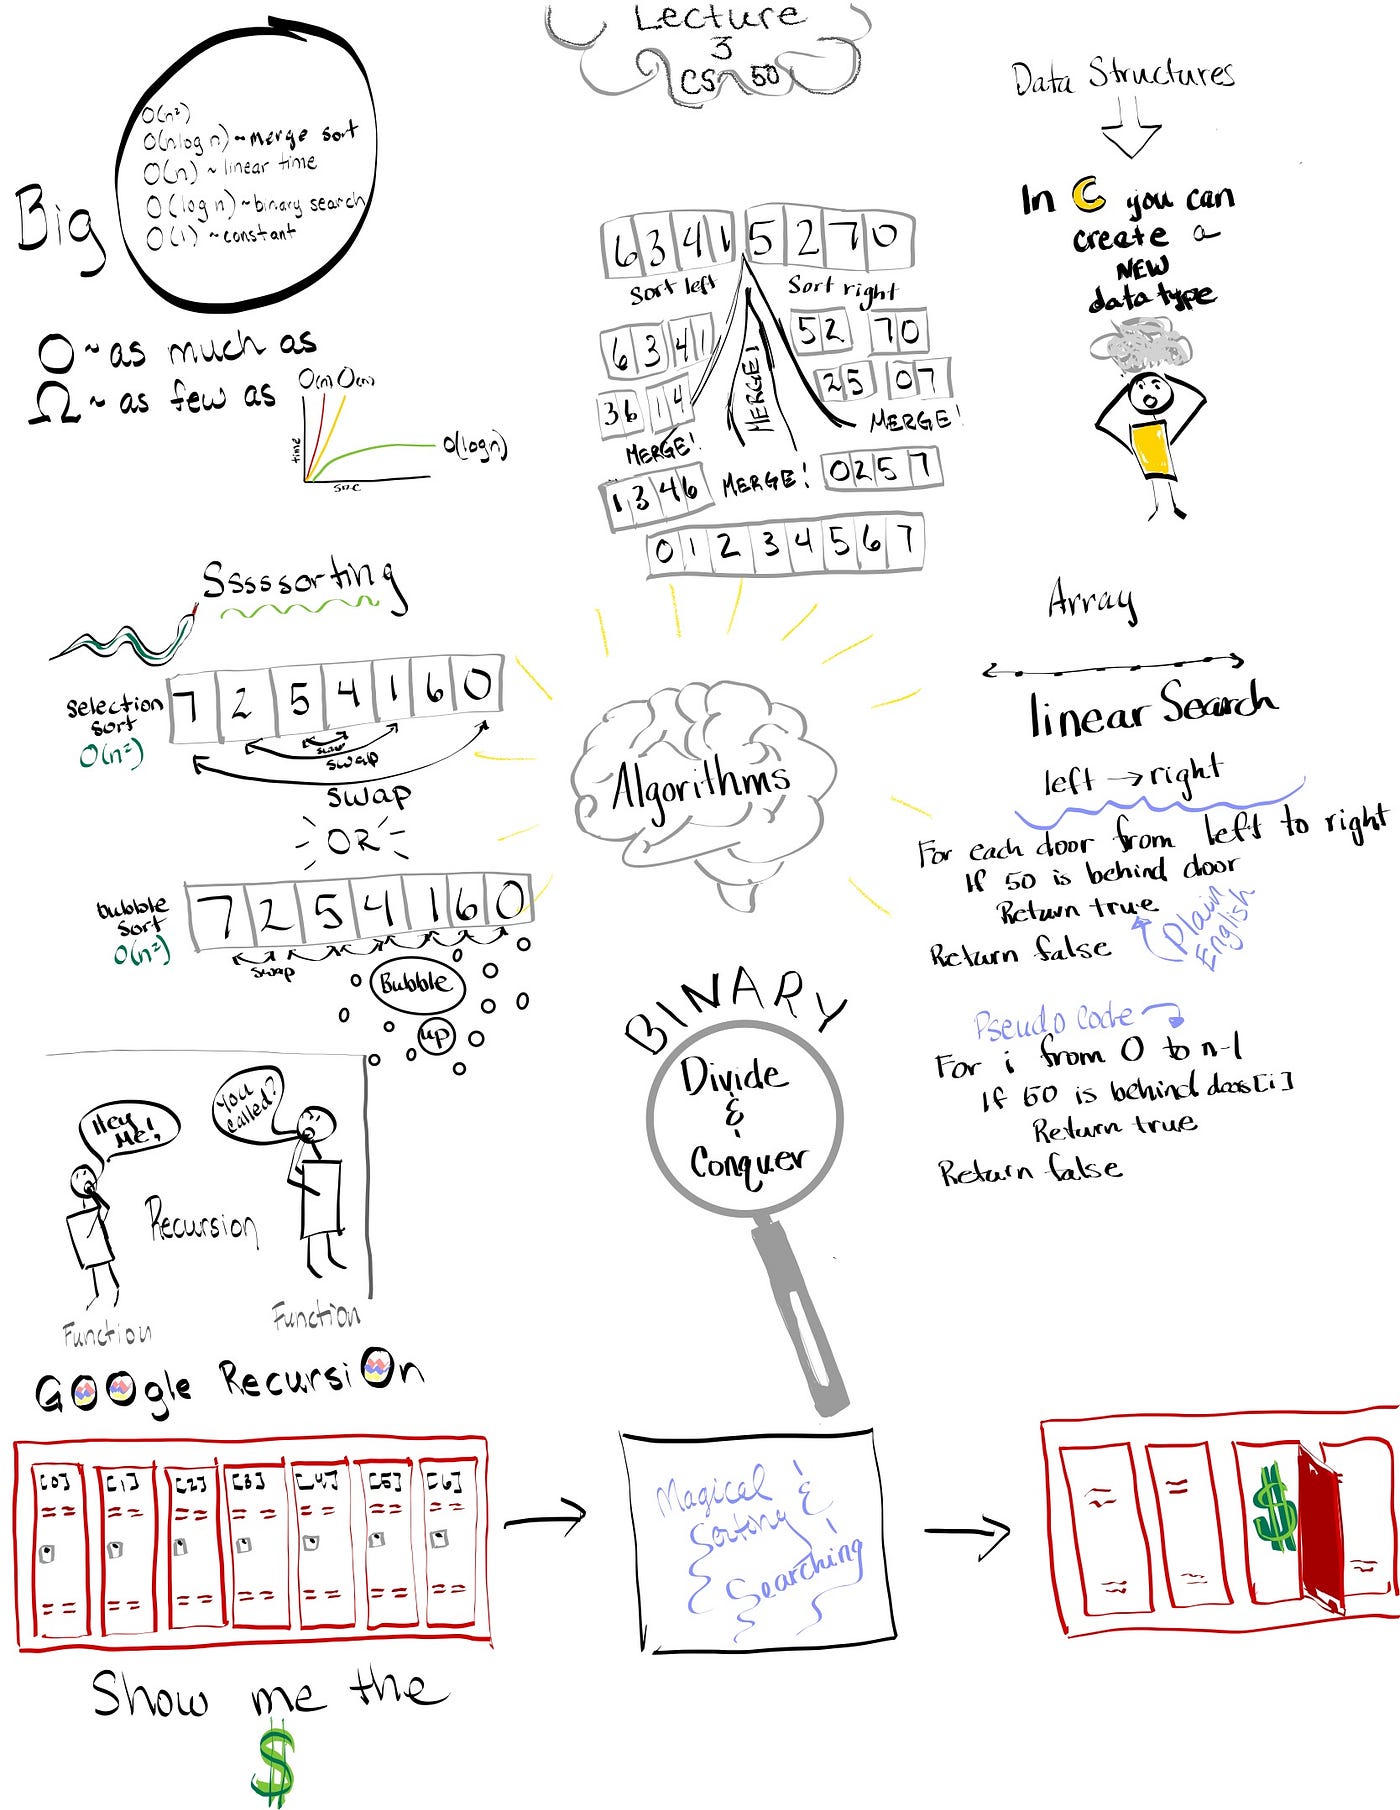 Lecture
3
CS 50
Big
O(n²)
O(nlog n) ~ merge sort
O(n) ~ linear time
O(log n) ~ binary search
O(1) ~ constant
O ~ as much as
Ω ~ as few as
O(n) O(n)
O(log n)
time
size
6 3 4 1 5 2 7 0
Sort left
Sort right
6 3 4 1
5 2 7 0
3 6 1 4
2 5 0 7
MERGE!
MERGE!
MERGE!
1 3 4 6
MERGE!
0 2 5 7
0 1 2 3 4 5 6 7
Data Structures
In C you can
create a
NEW
data type
Sssssorting
selection
sort
O(n²)
7 2 5 4 1 6 0
swap
swap
swap
OR
bubble
sort
O(n²)
7 2 5 4 1 6 0
swap
Bubble
up
Algorithms
Array
linear Search
left → right
For each door from left to right
If 50 is behind door
Return true
Return false
Plain
English
Pseudo Code
For i from 0 to n-1
If 50 is behind doors[i]
Return true
Return false
BINARY
Divide
&
Conquer
Hey
Me!
You
called?
Recursion
Function
Function
GOOgle RecursiOn
[0] [1] [2] [3] [4] [5] [6]
Show me the
$
Magical
Sorting &
Searching
$